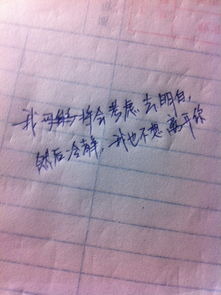 我可能将会考虑去明白,
然后冷静,我也不想离开你